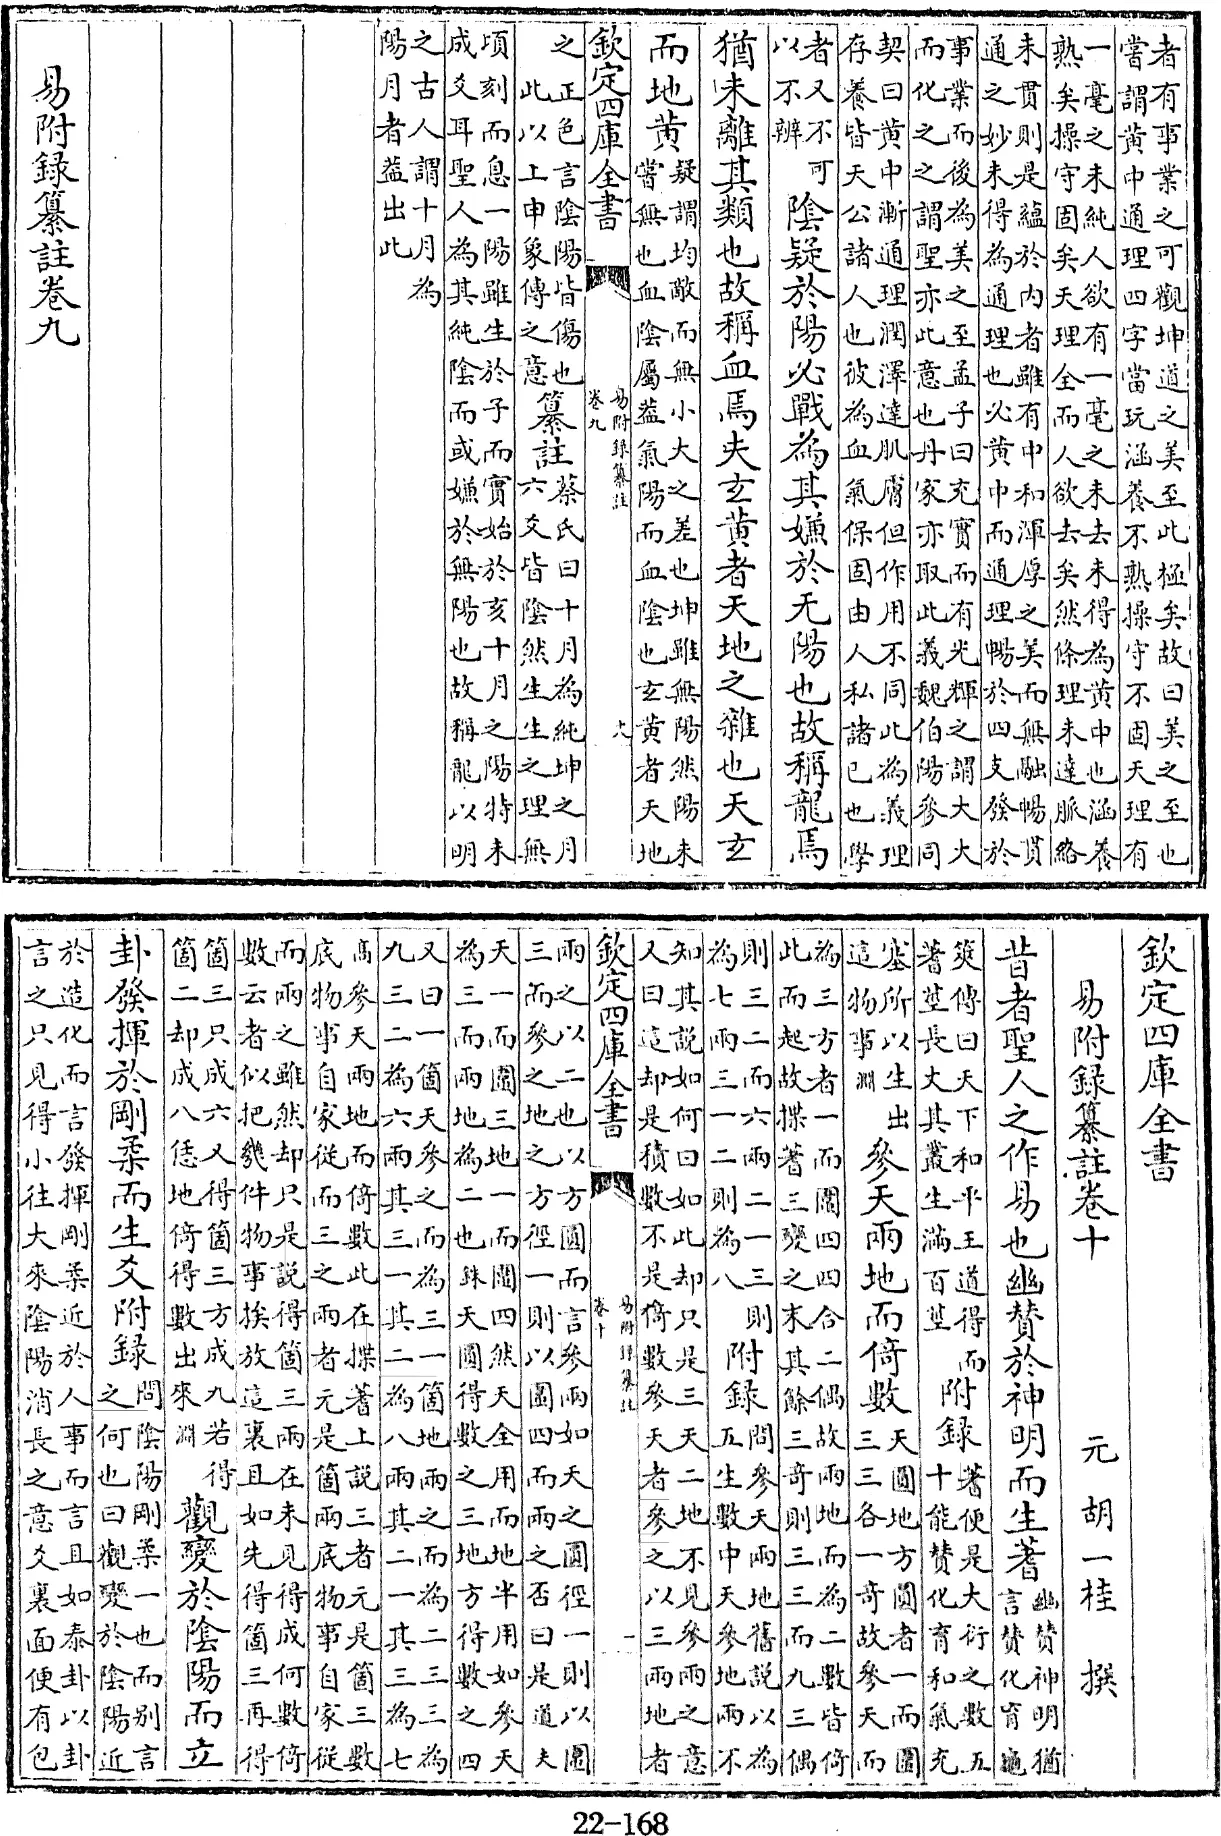 者有事業之可觀坤道之美至此極矣故曰美之至也
嘗謂黄中通理四字當玩涵養不熟操守不固天理有
一毫之未純人欲有一毫之未去未得為黄中也涵養
熟矣操守固矣天理全而人欲去矣然條理未達脈絡
未貫則是蘊於内者雖有中和渾厚之美而無融暢貫
通之妙未得為通理也必黄中而通理暢於四支發於
事業而後為美之至孟子曰充實而有光輝之謂大大
而化之之謂聖亦此意也丹家亦取此義魏伯陽參同
契曰黄中漸通理潤澤達肌膚但作用不同此為義理
存養皆天公諸人也彼為血氣保固由人私諸已也學
者又不可
以不辨
陰疑於陽必戰為其嫌於无陽也故稱龍焉
猶未離其類也故稱血焉夫玄黄者天地之雜也天玄
而地黄
疑謂均敵而無小大之差也坤雖無陽然陽未
嘗無也血陰屬蓋氣陽而血陰也玄黄者天地
欽定四庫全書
易附録纂註
卷九
之正色言陰陽皆傷也
此以上申象傳之意
纂註
蔡氏曰十月為純坤之月
六爻皆陰然生生之理無
頃刻而息一陽雖生於子而實始於亥十月之陽特未
成爻耳聖人為其純陰而或嫌於無陽也故稱龍以明
之古人謂十月為
陽月者蓋出此
易附録纂註卷九
欽定四庫全書
易附録纂註卷十
元 胡一桂 撰
昔者聖人之作易也幽賛於神明而生蓍
幽賛神明猶
言賛化育龜
筴傳曰天下和平王道得而
蓍莖長丈其叢生滿百莖
附録
蓍便是大衍之數五
十能賛化育和氣充
塞所以生出
這物事淵
參天兩地而倚數
天圓地方圓者一而圍
三三各一奇故參天而
為三方者一而圍四四合二偶故兩地而為二數皆倚
此而起故揲蓍三變之末其餘三奇則三三而九三偶
則三二而六兩二一三則
為七兩三一二則為八
附録
問參天兩地舊說以為
五生數中天參地兩不
知其說如何曰如此却只是三天二地不見參兩之意
又曰這却是積數不是倚數參天者參之以三兩地者
欽定四庫全書
易附録纂註
卷十
一
兩之以二也以方圓而言參兩如天之圓徑一則以圍
三而參之地之方徑一則以圍四而兩之否曰是道夫
天一而圍三地一而圍四然天全用而地半用如參天
為三而兩地為二也銖天圓得數之三地方得數之四
又曰一箇天參之而為三一箇地兩之而為二三三為
九三二為六兩其三一其二為八兩其二一其三為七
高參天兩地而倚數此在揲蓍上說三者元是箇三數
底物事自家從而三之兩者元是箇兩底物事自家從
而兩之雖然却只是說得箇三兩在未見得成何數倚
數云者似把幾件物事挨放這裏且如先得箇三再得
箇三只成六又得箇三方成九若得
箇二却成八恁地倚得數出來淵
觀變於陰陽而立
卦發揮於剛柔而生爻附録
問陰陽剛柔一也而别言
之何也曰觀變於陰陽近
於造化而言發揮剛柔近於人事而言且如泰卦以卦
言之只見得小往大來陰陽消長之意爻裏面便有包
22-168